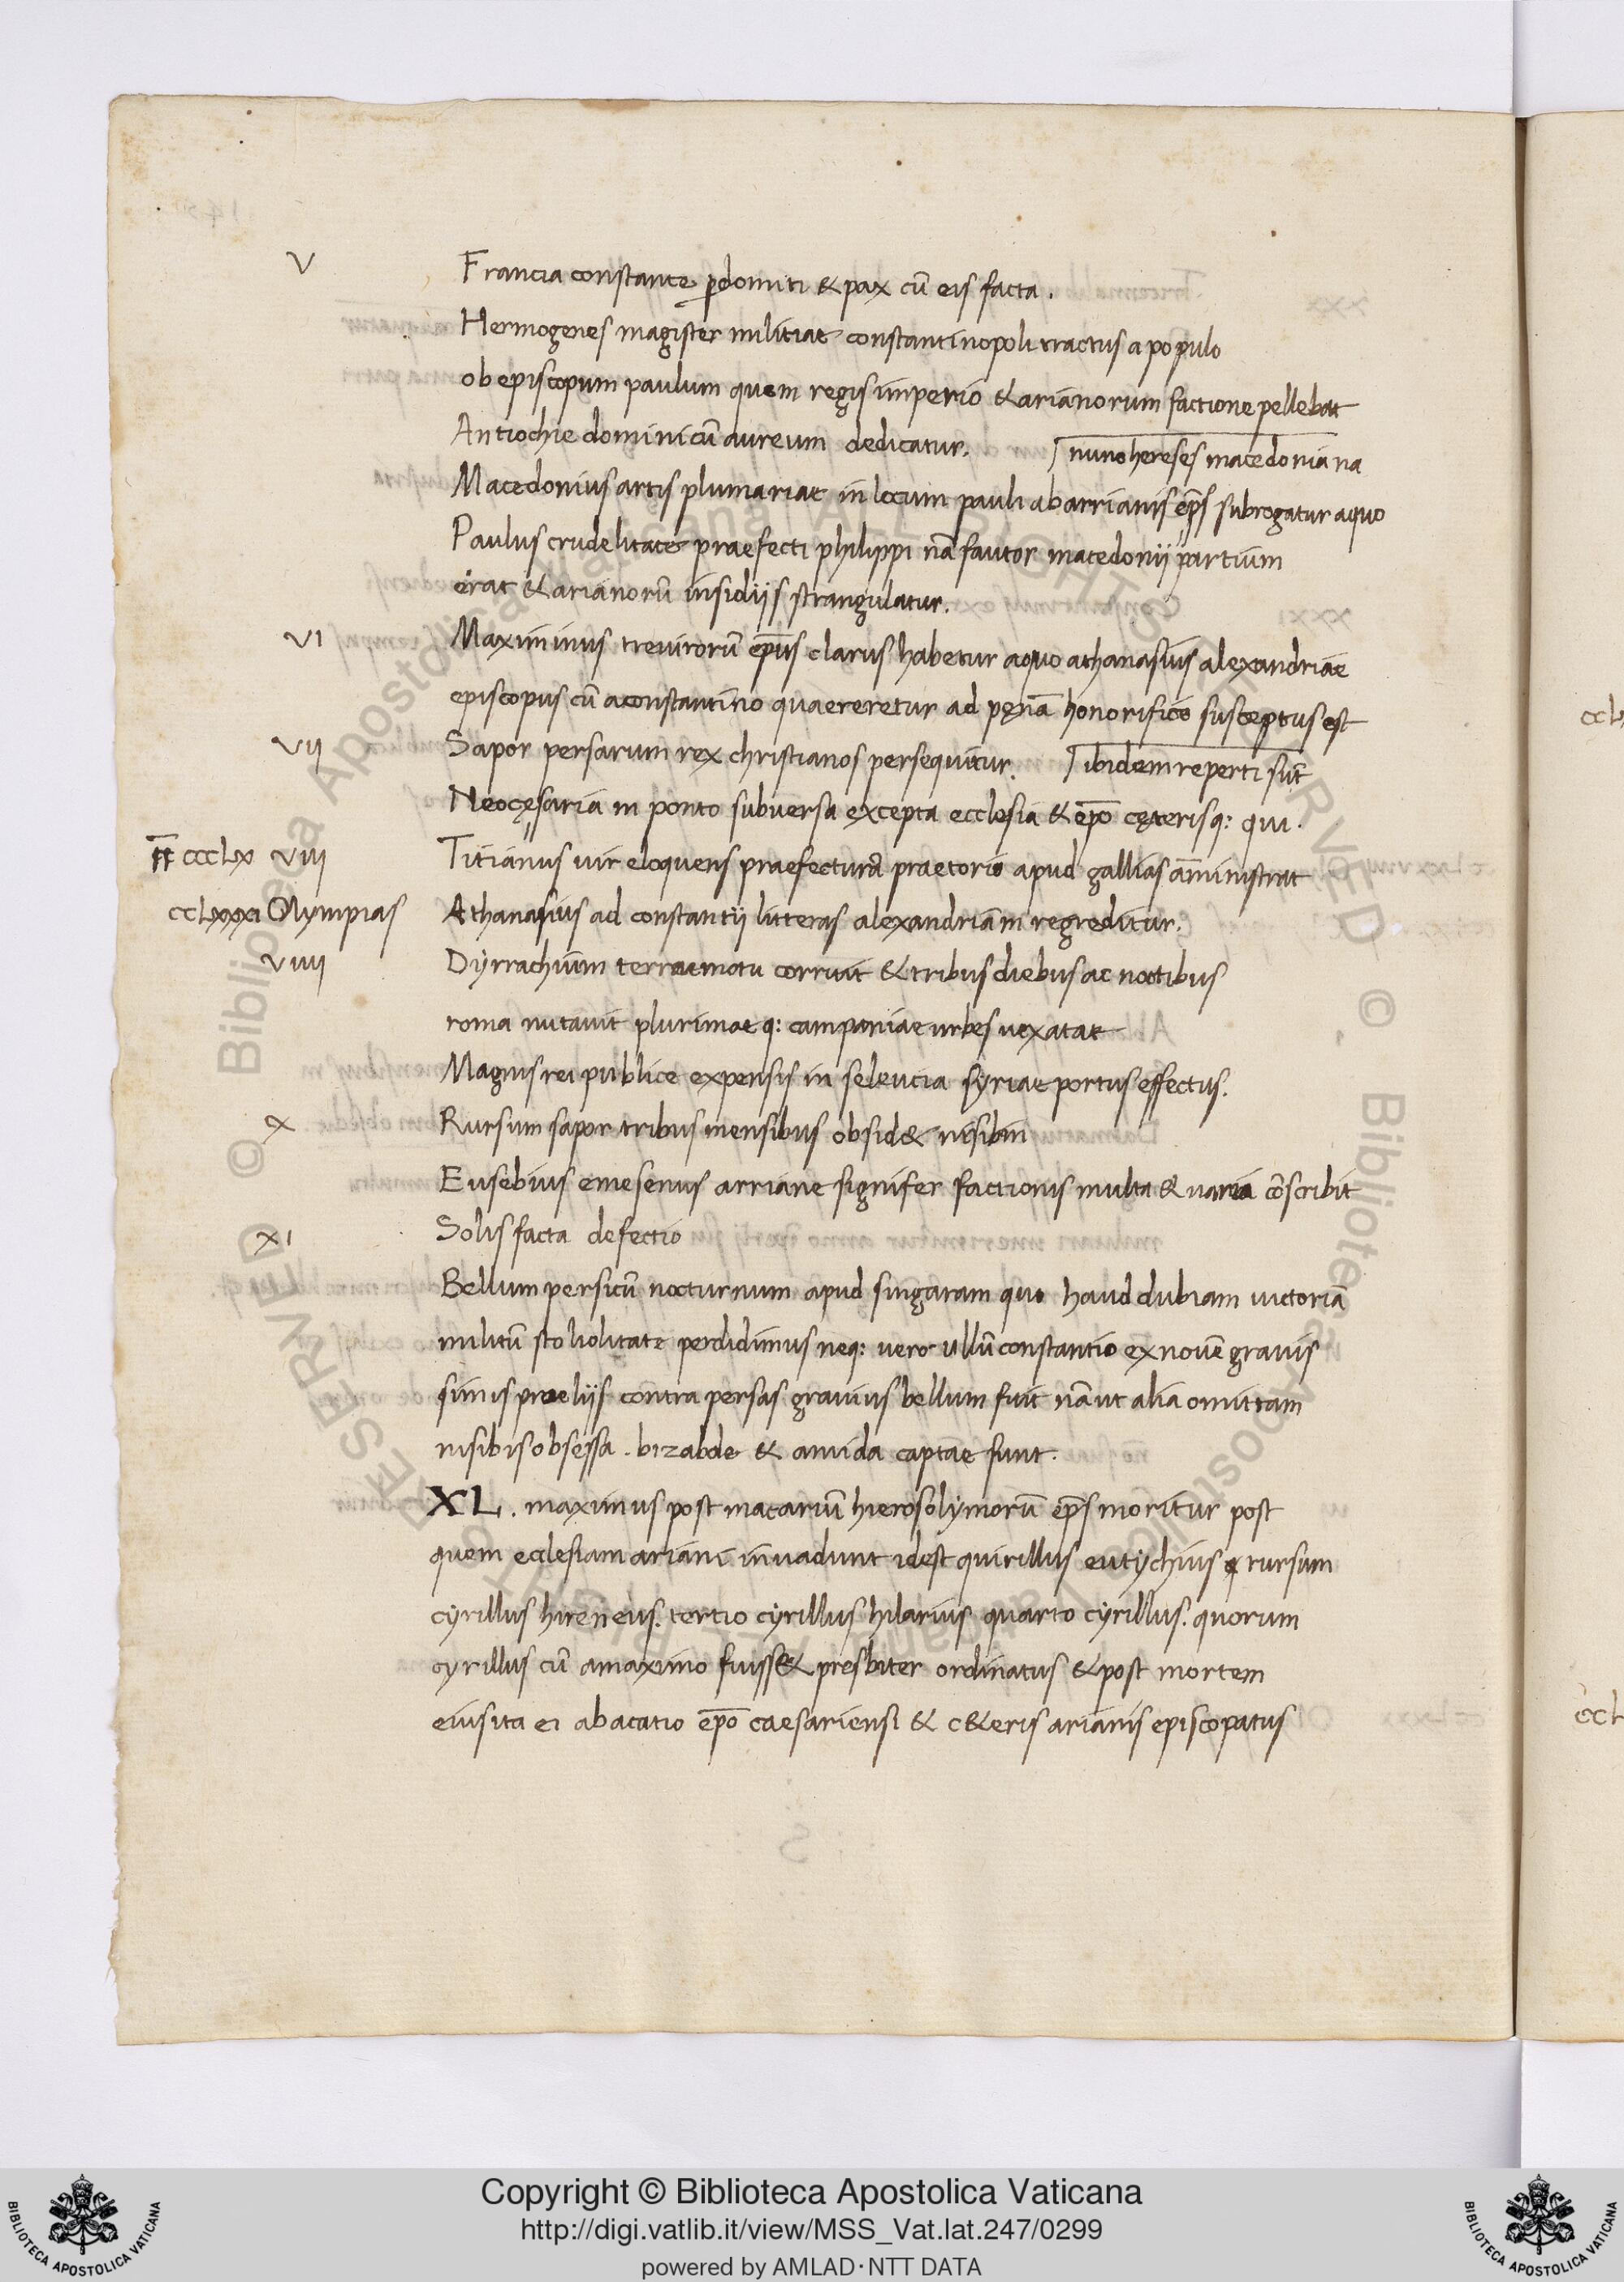 V Francia constante pdomiti & pax cū eis facta.
Hermogenes magister militiae constantinopoli tractus a populo
ob episcopum paulum quem regis imperio & arianorum factione pellebat
Antiochie dominicū aureum dedicatur. nunc hereses macedoniana
Macedonius artis plumariae in locum pauli ab arrianis ep̄s subrogatur a quo
Paulus crudelitate praefecti philippi nā fautor macedonij partium
erat & arianorū insidijs strangulatur.
VI Maximinus treuirorū ep̄us clarus habetur a quo athanasius alexandriae
episcopus cū a constantino quaereretur ad pęnā honorifice susceptus est
VII Sapor persarum rex christianos persequitur. ibidem reperti sūt
Neocęsaria in ponto subuersa excepta ecclesia & ep̄o cęterisq: qui.
CCCLX VIII Titianus uir eloquens praefecturā praetorio apud gallias am̄inistrat
CCLXXXI Olympias Athanasius ad constantij litteras alexandriam regreditur.
VIIII Dyrrachium terraemotu corruit & tribus diebus ac noctibus
roma nutauit plurimae q: campaniae urbes uexatae
Magnis rei publice expensis in seleucia syriae portus effectus.
X Rursum sapor tribus mensibus obsid& nisibin
Eusebius emesenus arriane signifer factionis multa & uaria cōscribit
XI Solis facta defectio
Bellum persicū nocturnum apud singaram quo haud dubiam uictoriā
militū stoliolitate perdidimus neq: uero ullū constantio ex nouē grauis
simis praelijs contra persas grauius bellum fuit nā ut alia omittam
nisibis obsessa. bizabde & amida captae sunt.
XL. maximus post macariū hierosolymorū ep̄s moritur post
quem ecclesiam ariani inuadunt idest quirillus eutychius q rursum
cyrillus hireneus. tertio cyrillus hilarius quarto cyrillus. quorum
cyrillus cū a maximo fuiss& presbiter ordinatus & post mortem
eius ita ei ab acatio ep̄o caesariensi & c&eris arianis episcopatus
© Biblioteca Apostolica Vaticana
ALL RIGHTS RESERVED
Copyright © Biblioteca Apostolica Vaticana
http://digi.vatlib.it/view/MSS_Vat.lat.247/0299
powered by AMLAD·NTT DATA
BIBLIOTECA APOSTOLICA VATICANA
BIBLIOTECA APOSTOLICA VATICANA